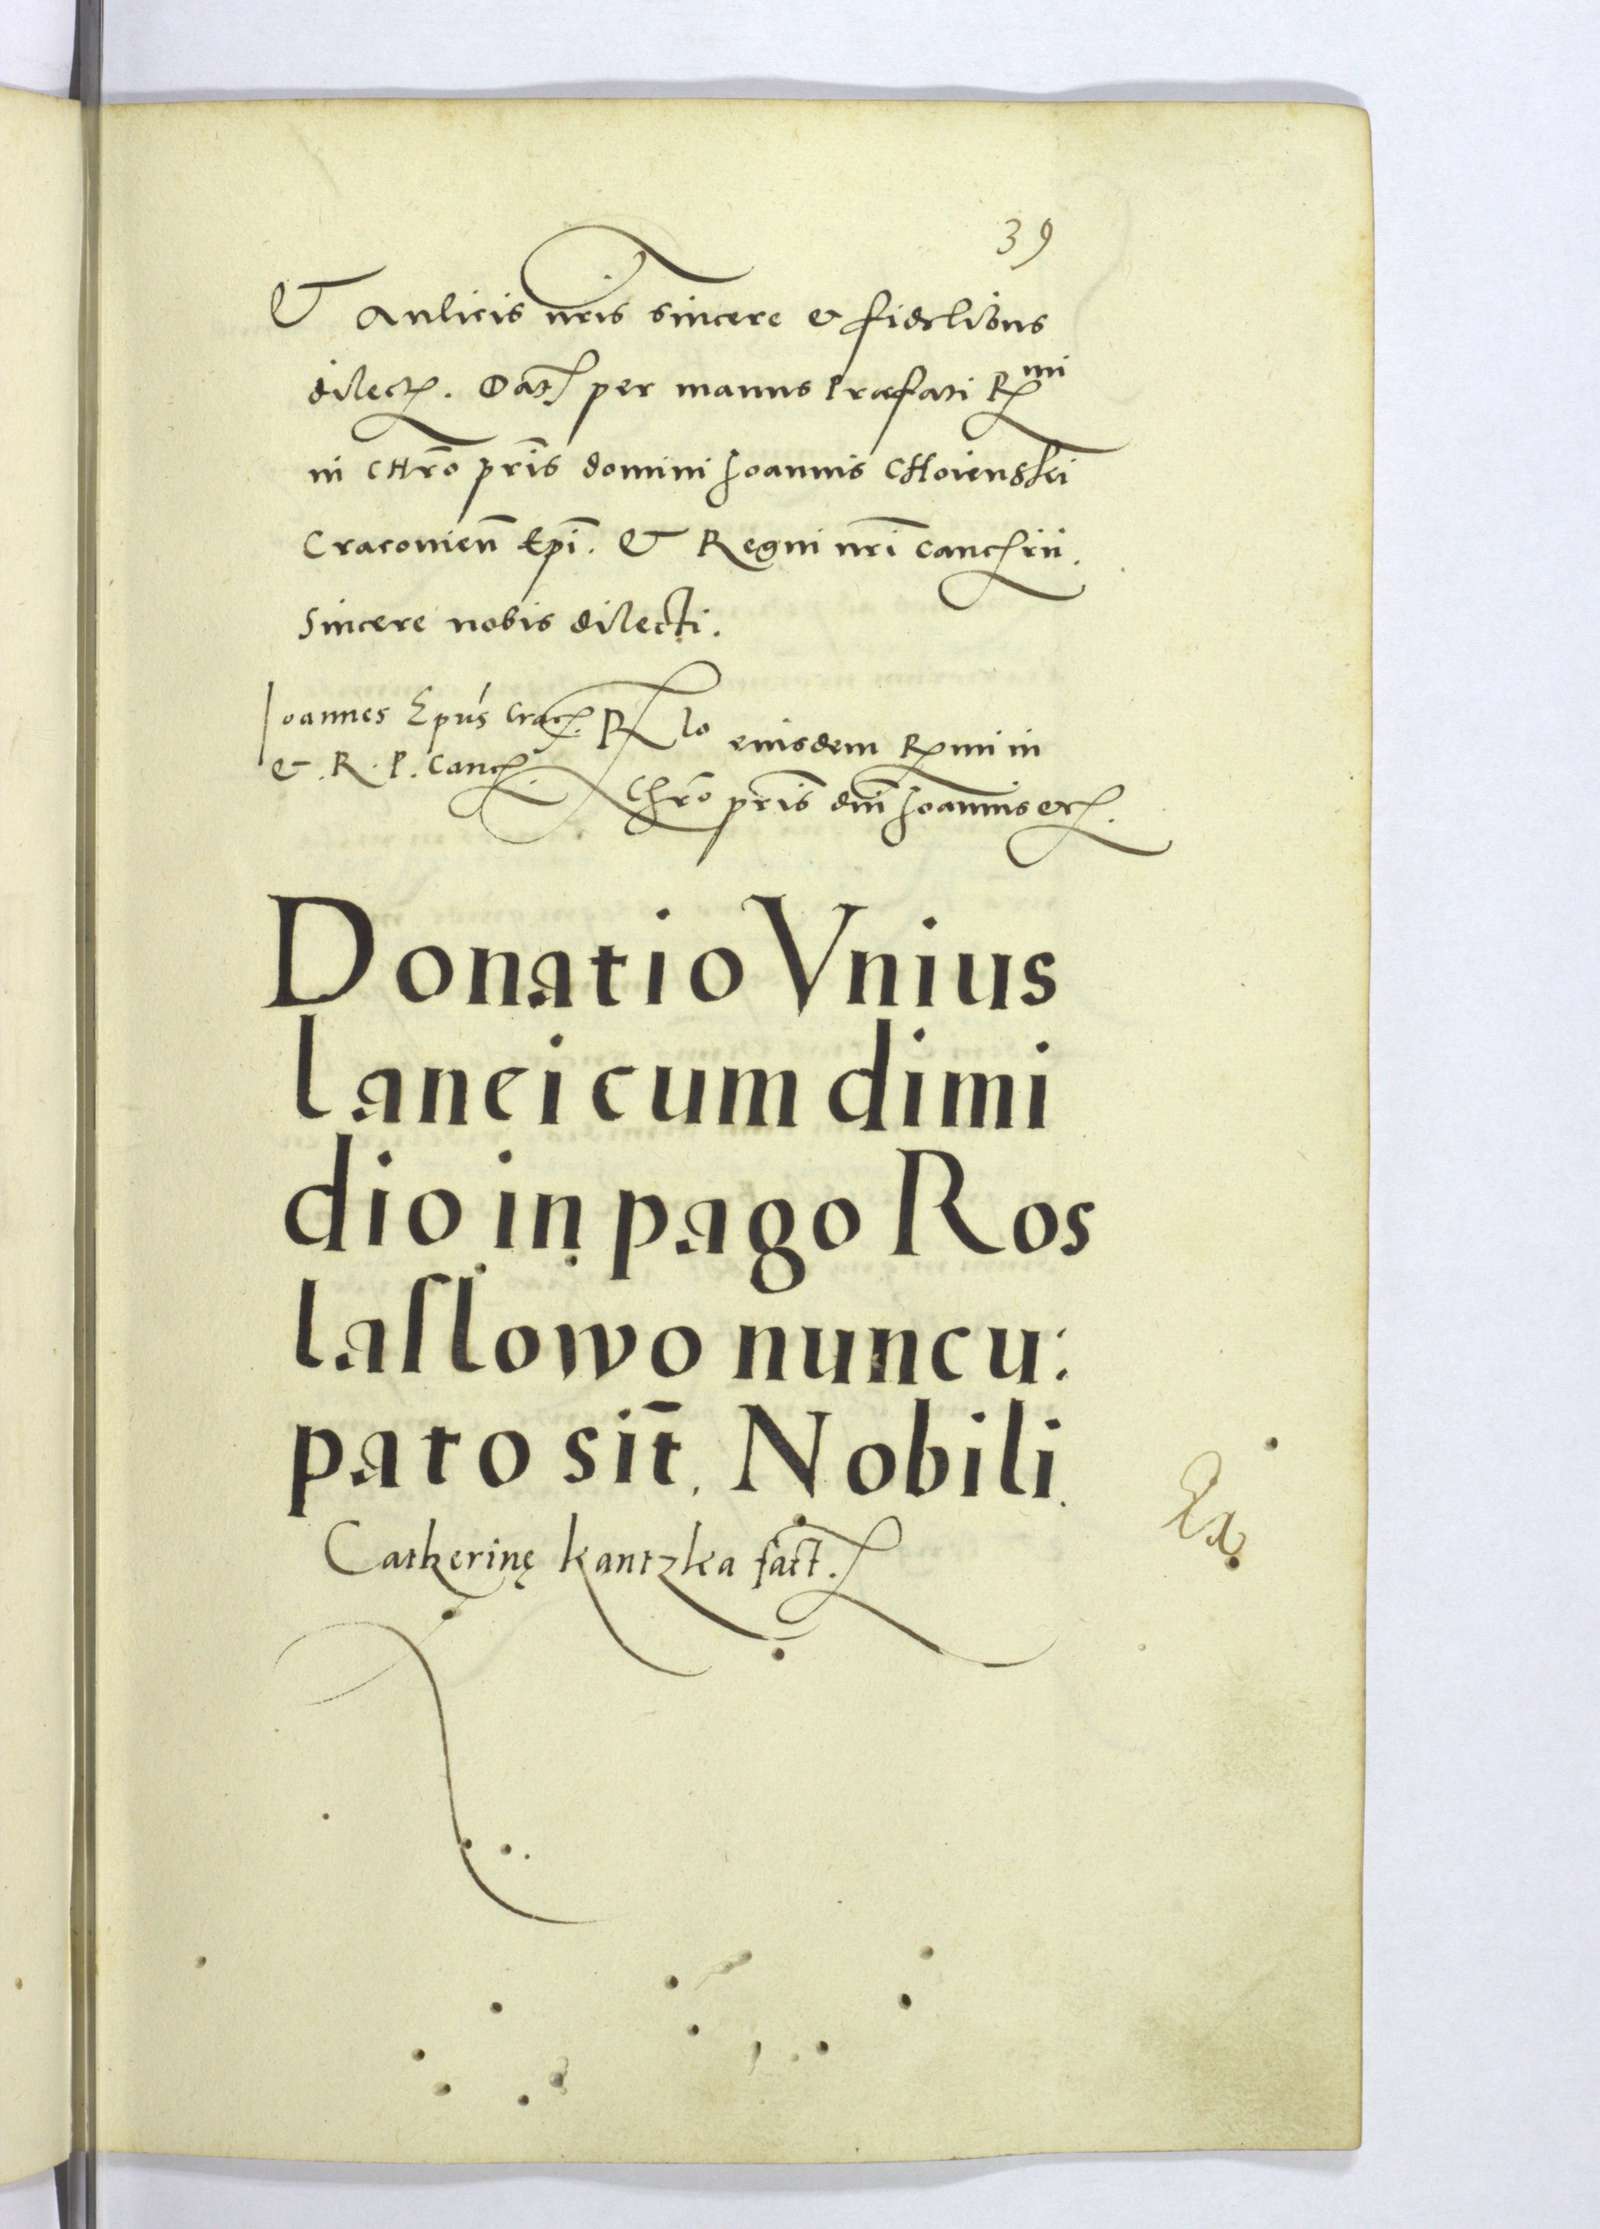 39
& Aulicis nr̄is sincere & fidelibus
dilectꝭ. Datꝭ per manus Præfati Rmi
in CHr̄o pr̄is domini Joannis CHoienskei
Cracovien̄ Ep̄i. & Regni nr̄i Cancꝭrii.
Sincere nobis dilecti.
Joannes Ep̄us Cracꝭ. Rlo eiusdem Rmi in
&. R. P. Cancꝭ. Chr̄o pr̄is dn̄i Joannis etcꝭ.
Donatio Vnius
lanei cum dimi
dio in pago Ros
laſlowo nuncu:
pato sit̄. Nobili
Catherinę kantzka fact.